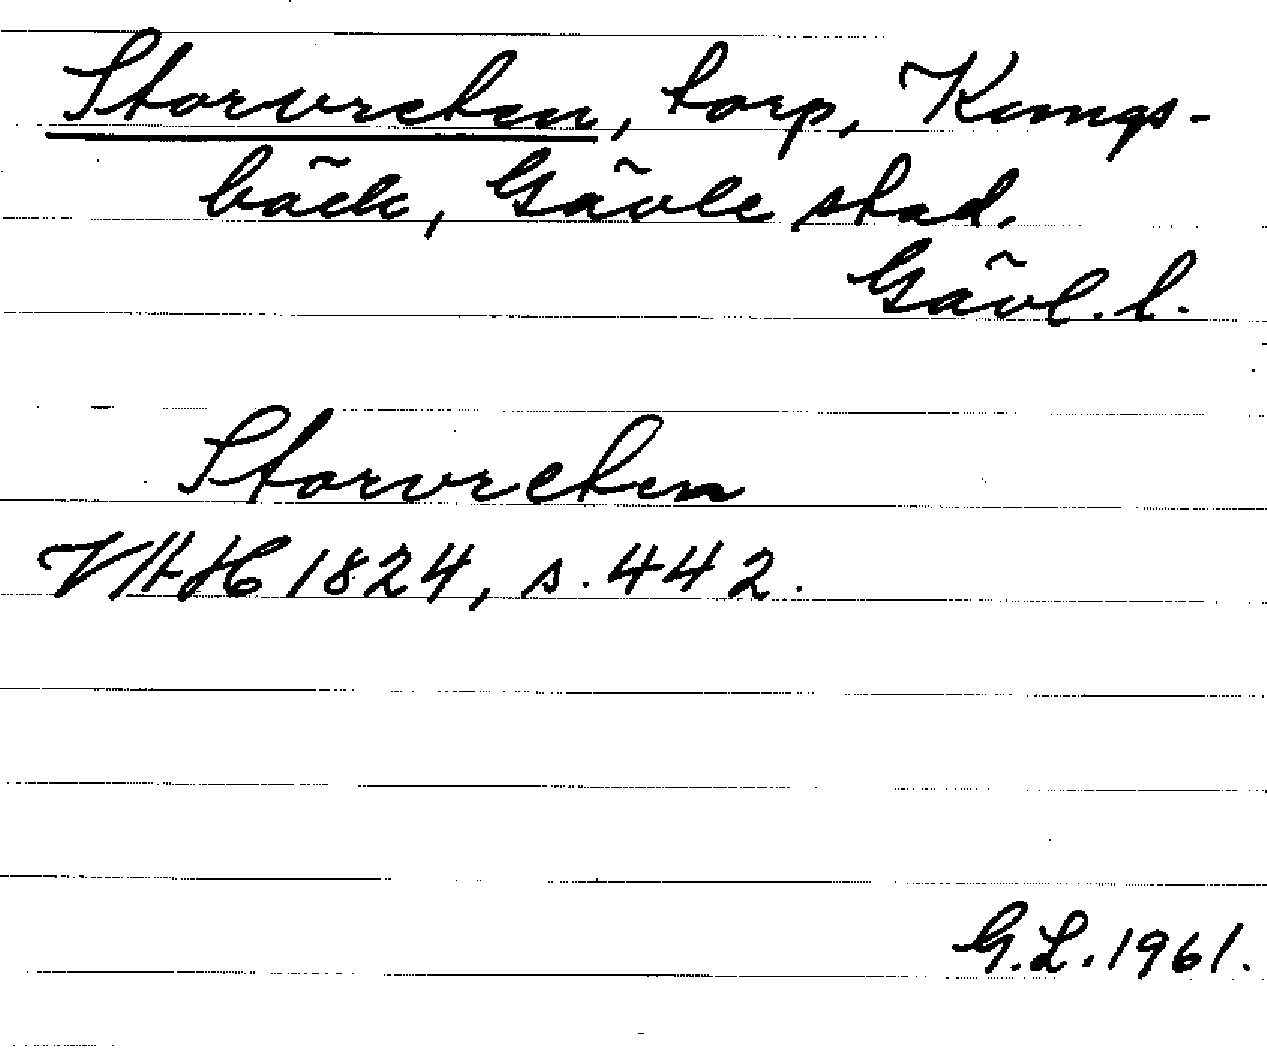 Storvreten, torp, Kungs-
bäck, Gävle stad.
Gävl. l.
Storvreten
VAH 1824, s. 442.
G.L. 1961.